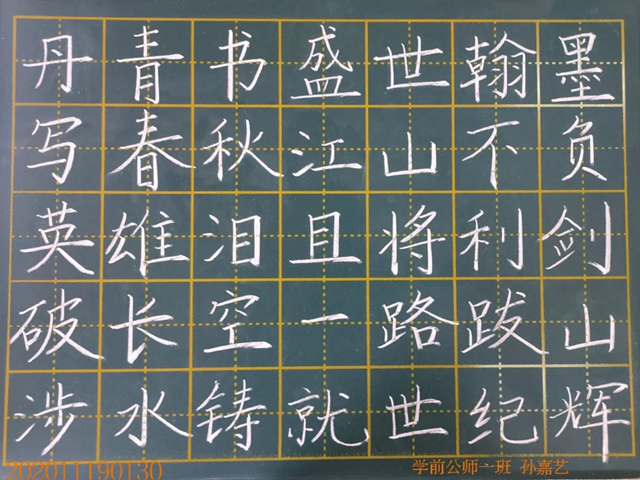 丹青书盛世翰墨
写春秋江山不负
英雄泪且将利剑
破长空一路跋山
涉水铸就世纪辉
202011190130 学前公师一班 孙嘉艺